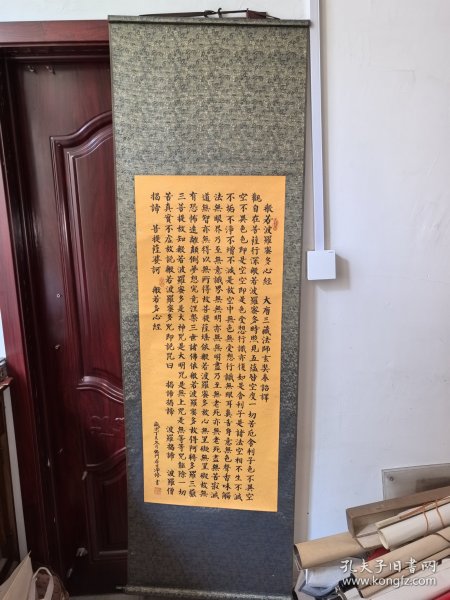 般若波羅蜜多心經　大唐三藏法師玄奘奉詔譯
觀自在菩薩行深般若波羅蜜多時照見五蘊皆空度一切苦厄舍利子色不異空
空不異色色即是空空即是色受想行識亦復如是舍利子是諸法空相不生不滅
不垢不淨不增不減是故空中無色無受想行識無眼耳鼻舌身意無色聲香味觸
法無眼界乃至無意識界無無明亦無無明盡乃至無老死亦無老死盡無苦寂滅
道無智亦無得以無所得故菩提薩埵依般若波羅蜜多故心無罣礙無罣礙故無
有恐怖遠離顛倒夢想究竟涅槃三世諸佛依般若波羅蜜多故得阿耨多羅三藐
三菩提故知般若波羅蜜多是大神咒是大明咒是無上咒是無等等咒能除一切
苦真實不虛故說般若波羅蜜多咒即說咒曰　揭諦揭諦　波羅揭諦　波羅僧
揭諦　菩提薩婆訶　般若多心經
孔夫子旧书网
www.kongfz.com